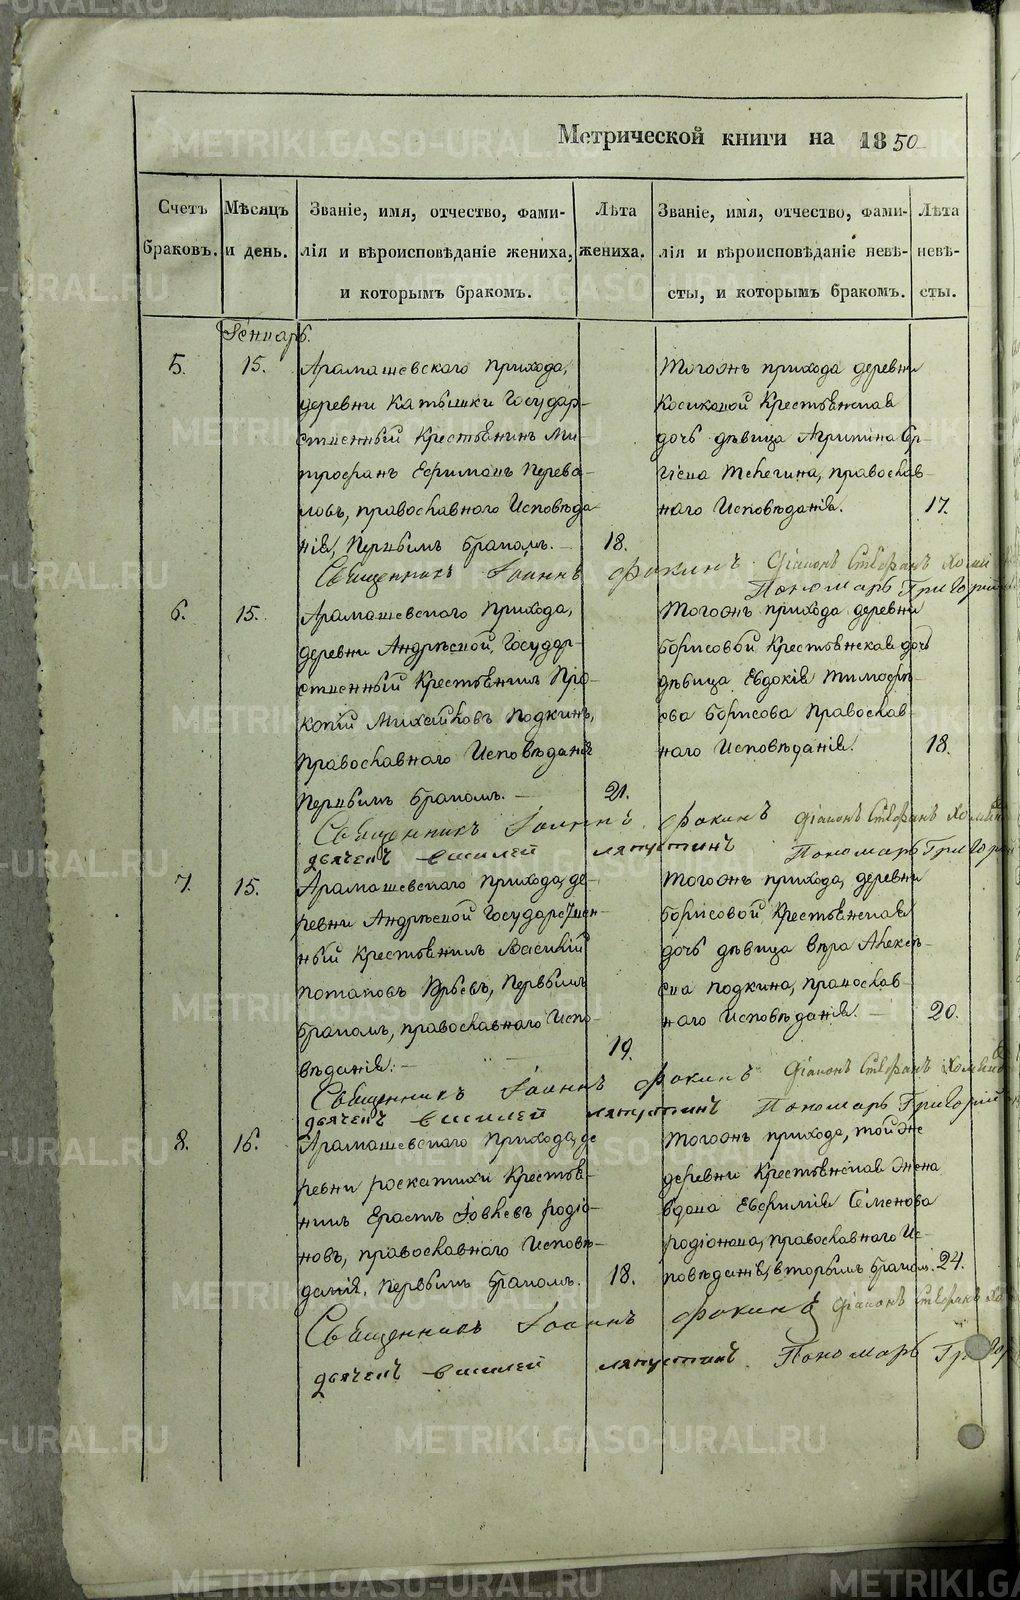 Метрической книги на 1850
Счетъ браковъ.
Мѣсяцъ и день.
Званіе, имя, отчество, фами-
лія и вѣроисповѣданіе жениха,
и которымъ бракомъ.
Лѣта жениха.
Званіе, имя, отчество, фами-
лія и вѣроисповѣданіе невѣ-
сты, и которымъ бракомъ.
Лѣта невѣ-
сты.
Генварь.
5.
15.
Арамашевскаго прихода,
деревни Катышки Государ-
ственный Крестьянинъ Ми-
трофанъ Ефимовъ Перева-
ловъ, православнаго Исповѣда
нія, Первымъ бракомъ.
18.
Тогожъ прихода деревни
Косиковой Крестьянская
дочь дѣвица Агрипина Ер-
Щегина, православ-
наго Исповѣданія.
17.
Священникъ Іоаннъ Фокинъ Діаконъ Стефанъ
Пономарь Григорій
6.
15.
Арамашевскаго Прихода,
деревни Андрѣевой, Государ-
ственный Крестьянинъ Про-
копій Михайловъ Подкинъ,
Православнаго Исповѣданія
Первымъ бракомъ.
21.
Тогожъ прихода деревни
Борисовой Крестьянская дочь
дѣвица Евдокія Тимофѣ-
ева Борисова Православ-
наго Исповѣданія.
18.
Священникъ Іоаннъ Фокинъ Діаконъ Стефанъ
дьячекъ василей ляпустинъ Пономарь Григорій
7.
15.
Арамашевскаго прихода, де-
ревни Андрѣевой Государствен-
ный Крестьянинъ Василій
Потаповъ Юрьевъ, Первымъ
бракомъ, православнаго Испо-
вѣданія.
19.
Тогожъ прихода, деревни
Борисовой Крестьянская
дочь дѣвица Вѣра Алексѣ-
ева Подкина, православ-
наго Исповѣданія.
20.
Священникъ Іоаннъ Фокинъ Діаконъ Стефанъ
дьячекъ василей ляпустинъ Пономарь Григорій
8.
16.
Арамашевскаго Прихода, де
ревни роскатихи Крестья-
нинъ Ерастъ Іовлевъ родіо-
новъ, православнаго Исповѣ-
данія, Первымъ бракомъ.
18.
Тогожъ прихода, той же
деревни Крестьянская жена
вдова Евфимія Семенова
родіонова, православнаго Ис-
повѣданія, вторымъ бракомъ.
24.
Священникъ Іоаннъ Фокинъ Діаконъ Стефанъ
дьячекъ василей ляпустинъ Пономарь Григор
METRIKI.GASO-URAL.RU